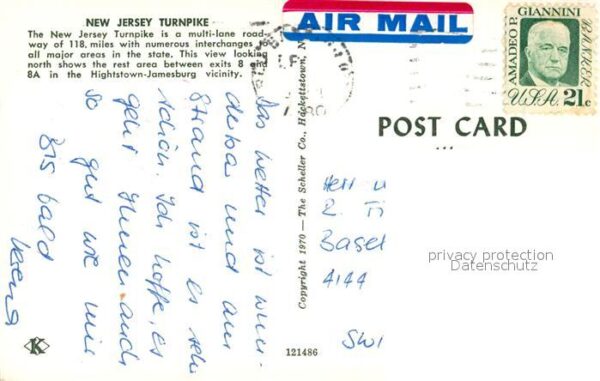 NEW JERSEY TURNPIKE
The New Jersey Turnpike is a multi-lane road-
way of 118 miles with numerous interchanges to
all major areas in the state. This view looking
north shows the rest area between exits 8 and
8A in the Hightstown-Jamesburg vicinity.
AIR MAIL
AMADEO P. GIANNINI
BANKER
U.S.A. 21c
POST CARD
Das Wetter ist wun-
derbar und am
Strand ist es sehr
schön. Ich hoffe, es
geht Ihnen auch
so gut wie mir
Bis bald
Copyright 1970 — The Scheller Co., Hackettstown, N.
Herr u
Basel
4144
SWI
privacy protection
Datenschutz
K
121486